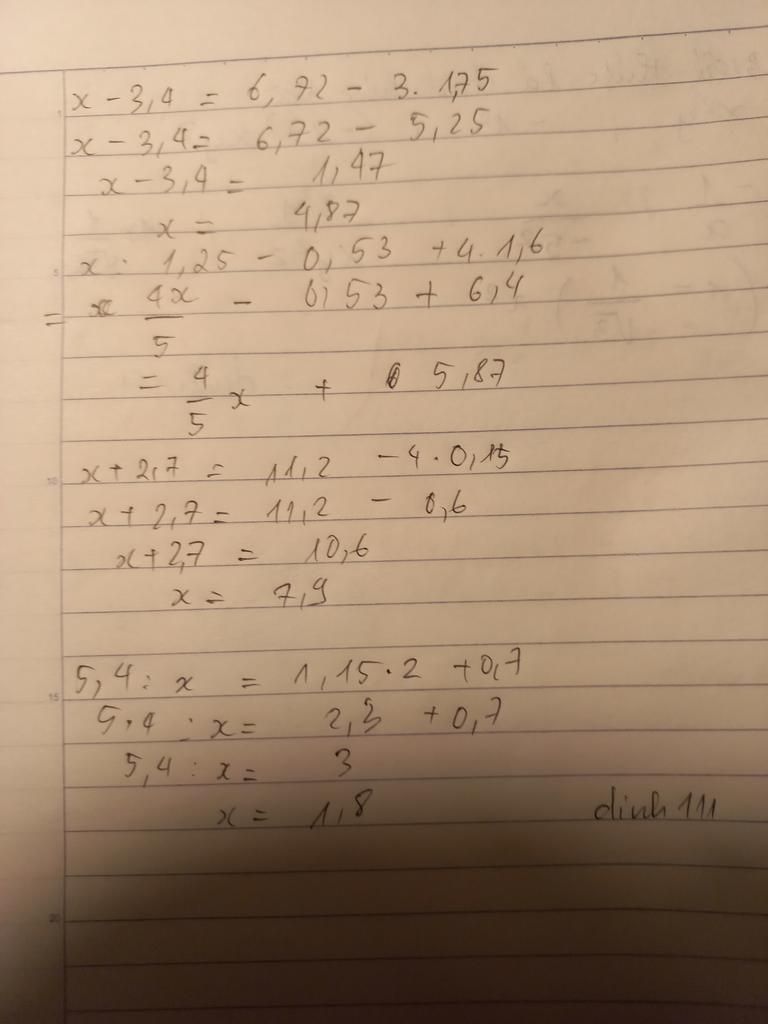 x - 3,4 = 6,72 - 3. 1,75
x - 3,4 = 6,72 - 5,25
x - 3,4 = 1,47
x = 4,87
x : 1,25 - 0,53 + 4. 1,6
= 4x/5 - 0,53 + 6,4
= 4/5 x + 5,87
x + 2,7 = 11,2 - 4 . 0,15
x + 2,7 = 11,2 - 0,6
x + 2,7 = 10,6
x = 7,9
5,4 : x = 1,15 . 2 + 0,7
5,4 : x = 2,3 + 0,7
5,4 : x = 3
x = 1,8
dinh 111